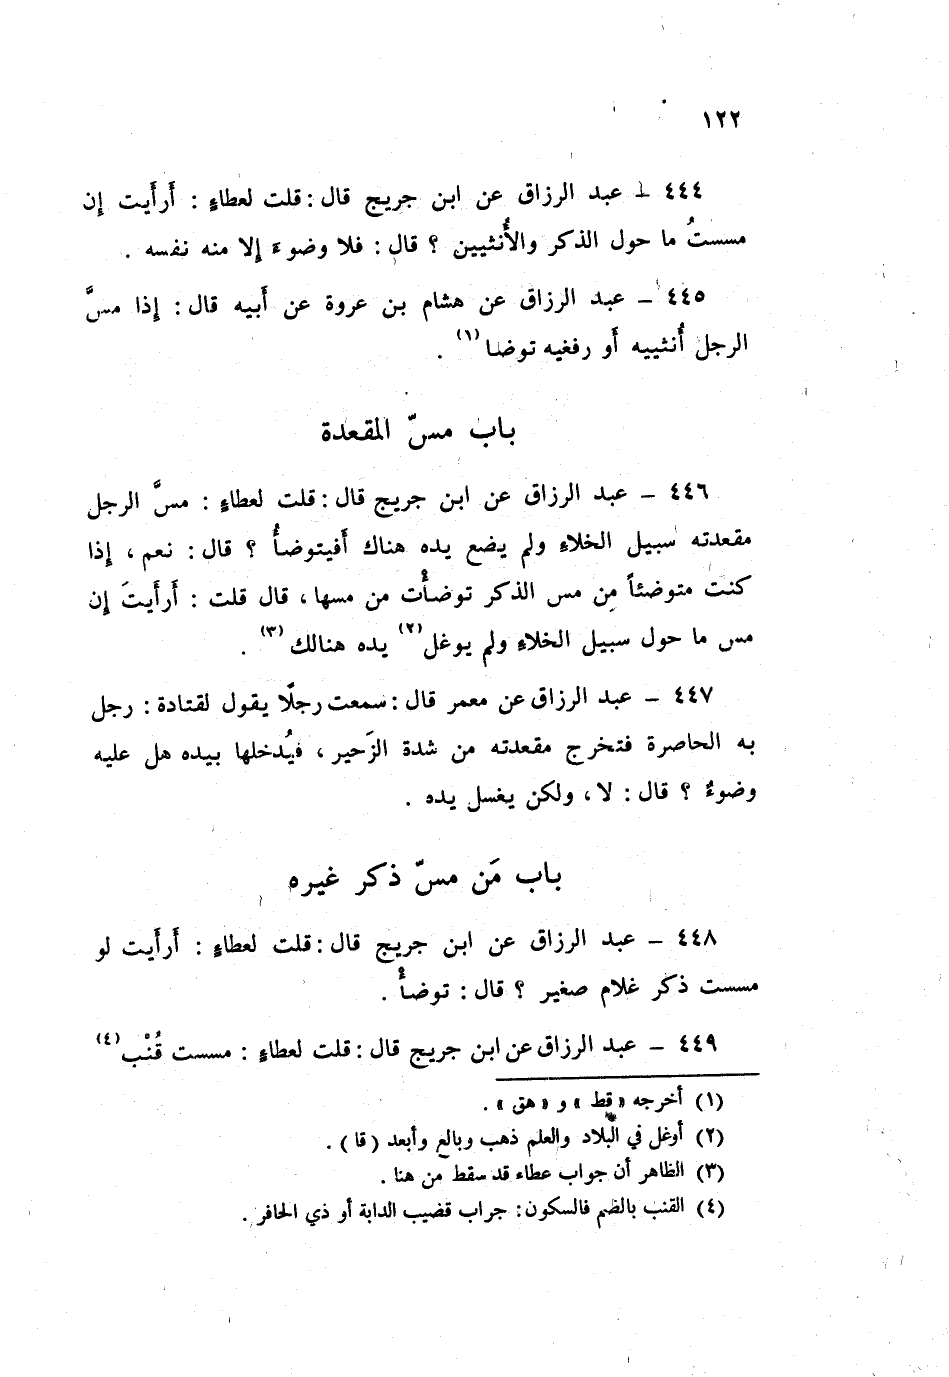 ١٢٢
٤٤٤ – عبد الرزاق عن ابن جريج قال : قلت لعطاءٍ : أَرأَيت إن
مسستُ ما حول الذكر والأُنثيين ؟ قال : فلا وضوءَ إلا منه نفسه .
٤٤٥ – عبد الرزاق عن هشام بن عروة عن أَبيه قال : إذا مسَّ
الرجل أُنثييه أَو رفغيه توضا (١) .
باب مسّ المقعدة
٤٤٦ – عبد الرزاق عن ابن جريج قال : قلت لعطاءٍ : مسَّ الرجل
مقعدته سبيل الخلاءِ ولم يضع يده هناك أَفيتوضأُ ؟ قال : نعم ، إذا
كنت متوضئاً من مس الذكر توضأْت من مسها ، قال قلت : أَرأَيتَ إن
مس ما حول سبيل الخلاءِ ولم يوغل (٢) يده هنالك (٣) .
٤٤٧ – عبد الرزاق عن معمر قال : سمعت رجلًا يقول لقتادة : رجل
به الحاصرة فتخرج مقعدته من شدة الزَحير ، فيُدخلها بيده هل عليه
وضوءٌ ؟ قال : لا ، ولكن يغسل يده .
باب مَن مسّ ذكر غيره
٤٤٨ – عبد الرزاق عن ابن جريج قال : قلت لعطاءٍ : أَرأَيت لو
مسست ذكر غلام صغير ؟ قال : توضأْ .
٤٤٩ – عبد الرزاق عن ابن جريج قال : قلت لعطاءٍ : مسست قُنْب (٤)
(١) أخرجه « قط » و « هق » .
(٢) أوغل في البلاد والعلم ذهب وبالغ وأبعد ( قا ) .
(٣) الظاهر أن جواب عطاء قد سقط من هنا .
(٤) القنب بالضم فالسكون : جراب قضيب الدابة أو ذي الحافر .